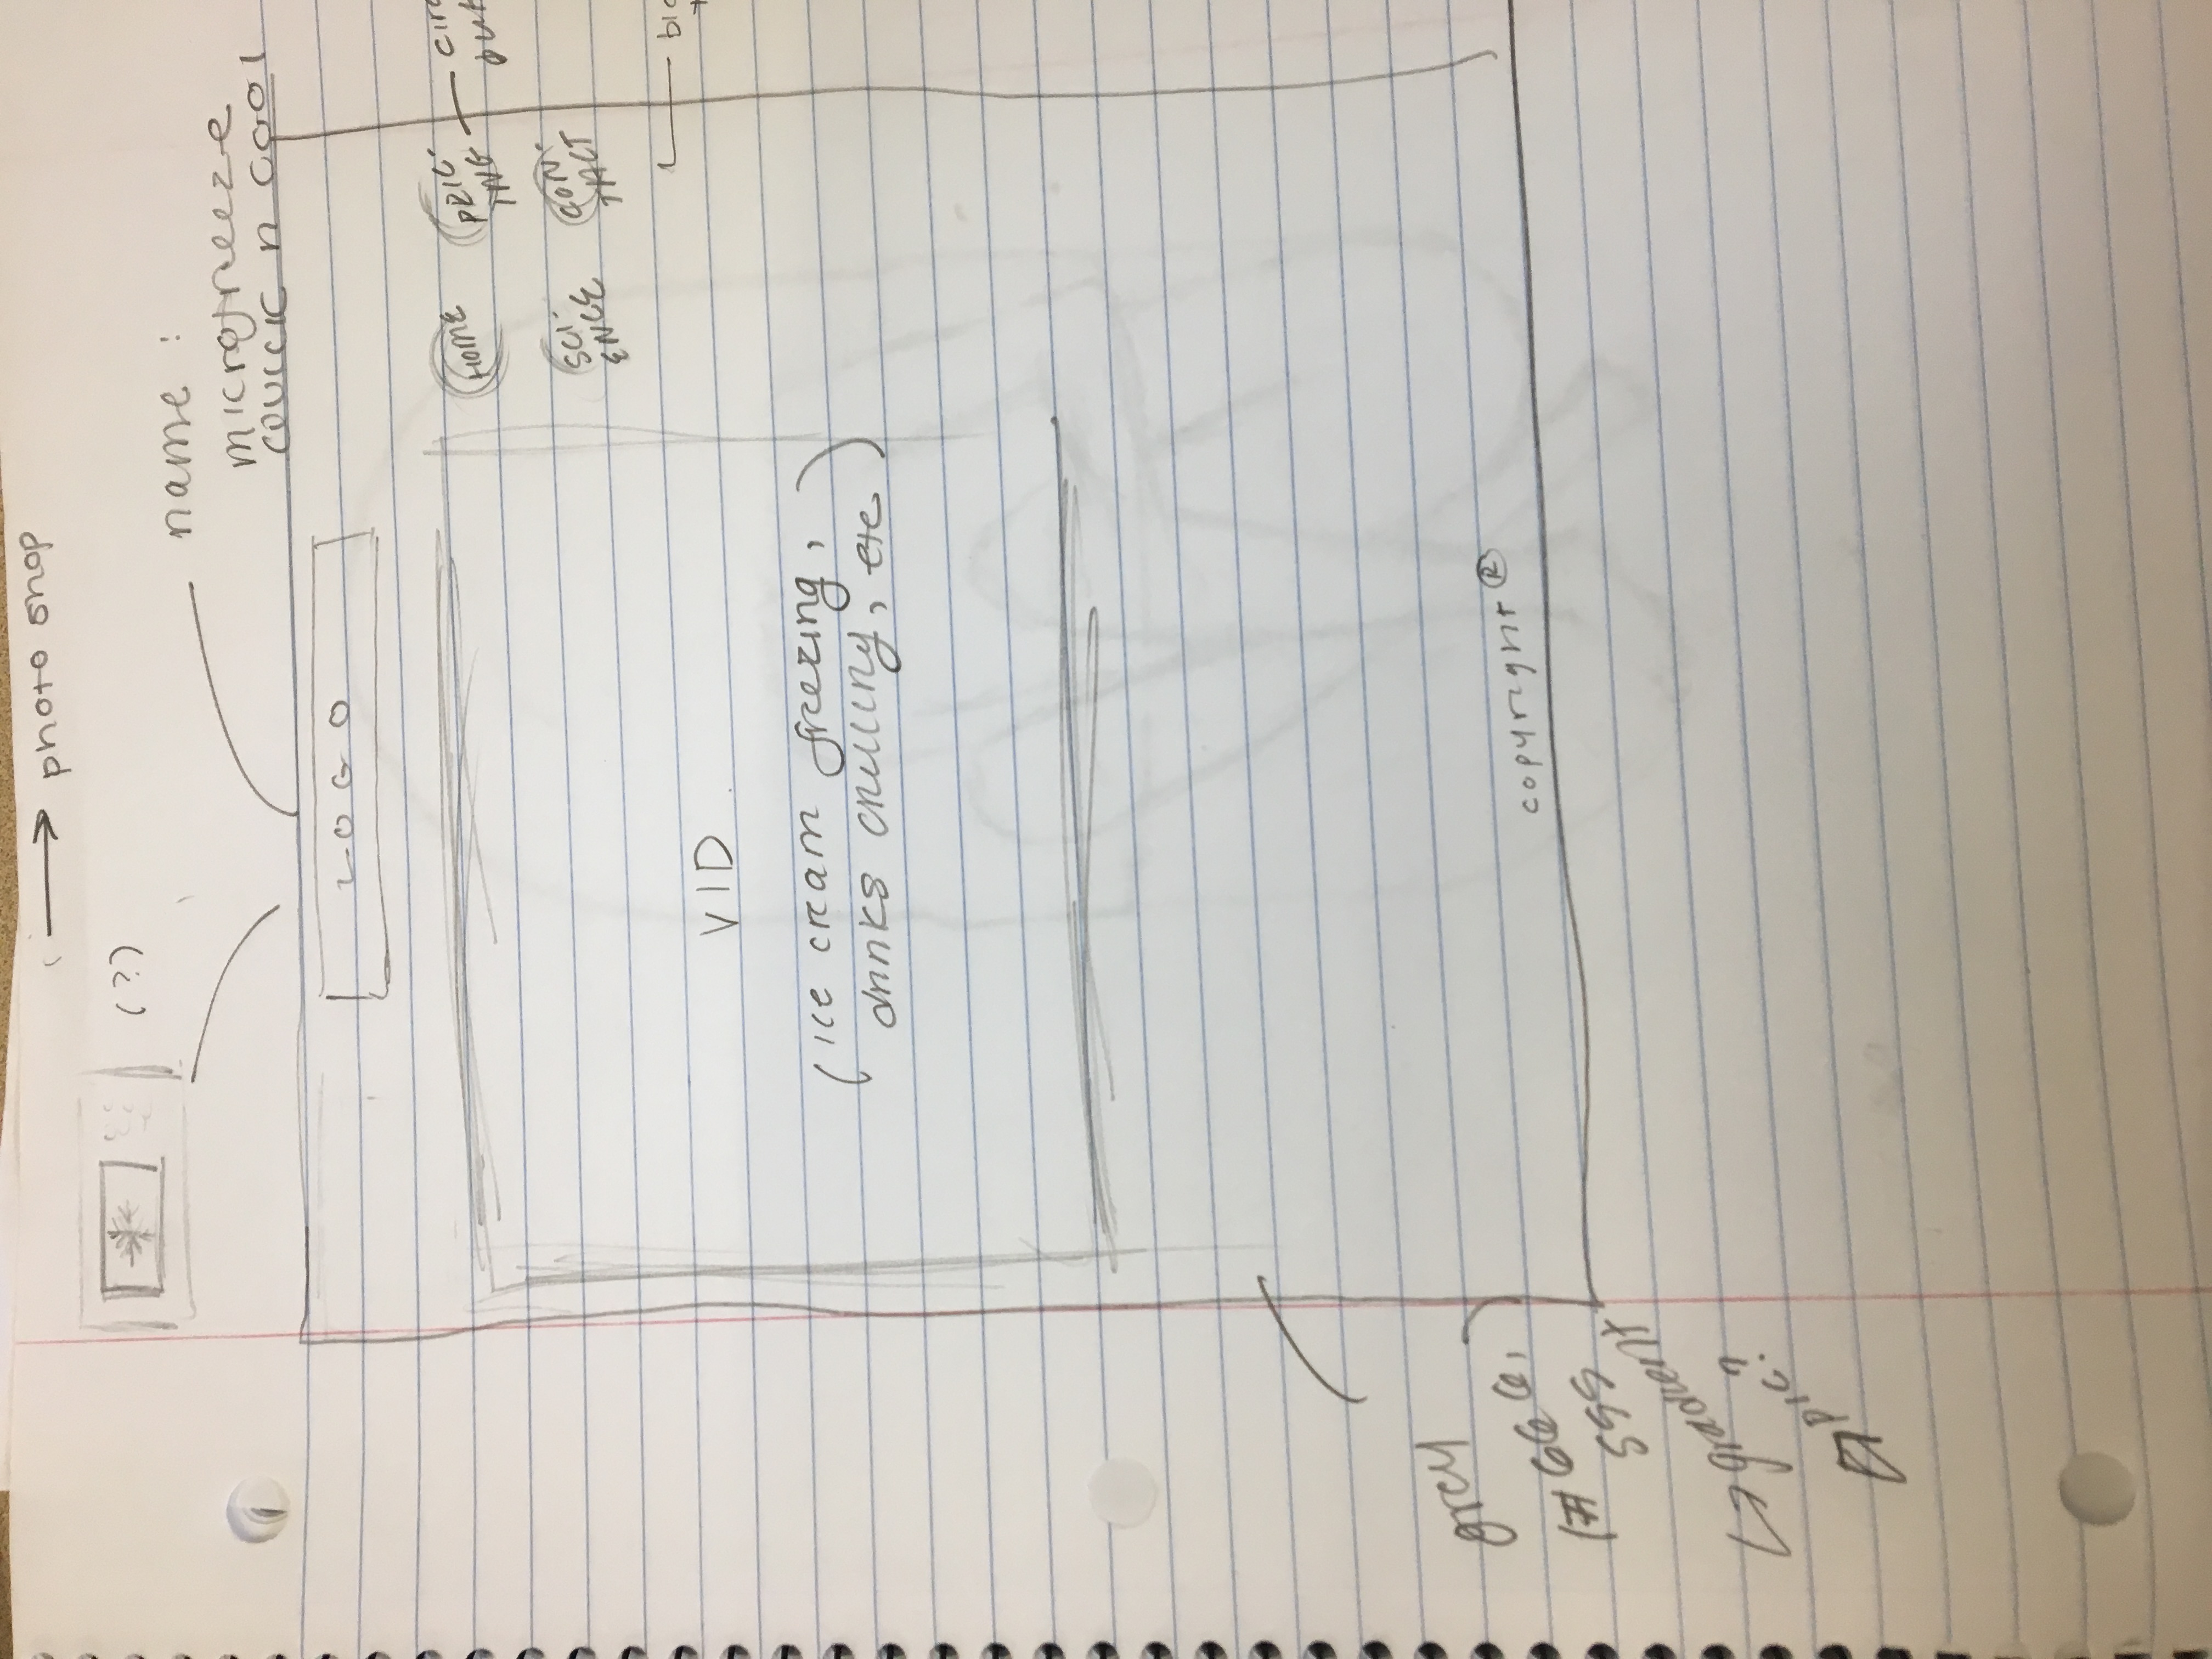 → photo shop
(?)
name :
microfreeze
quick n cool
LOGO
HOME
PRIC-
ING
SCI-
ENCE
CON-
TACT
VID
(ice cream freezing,
drinks chilling, etc)
copyright ®
grey
(# 666,
555
gradient?
pic.